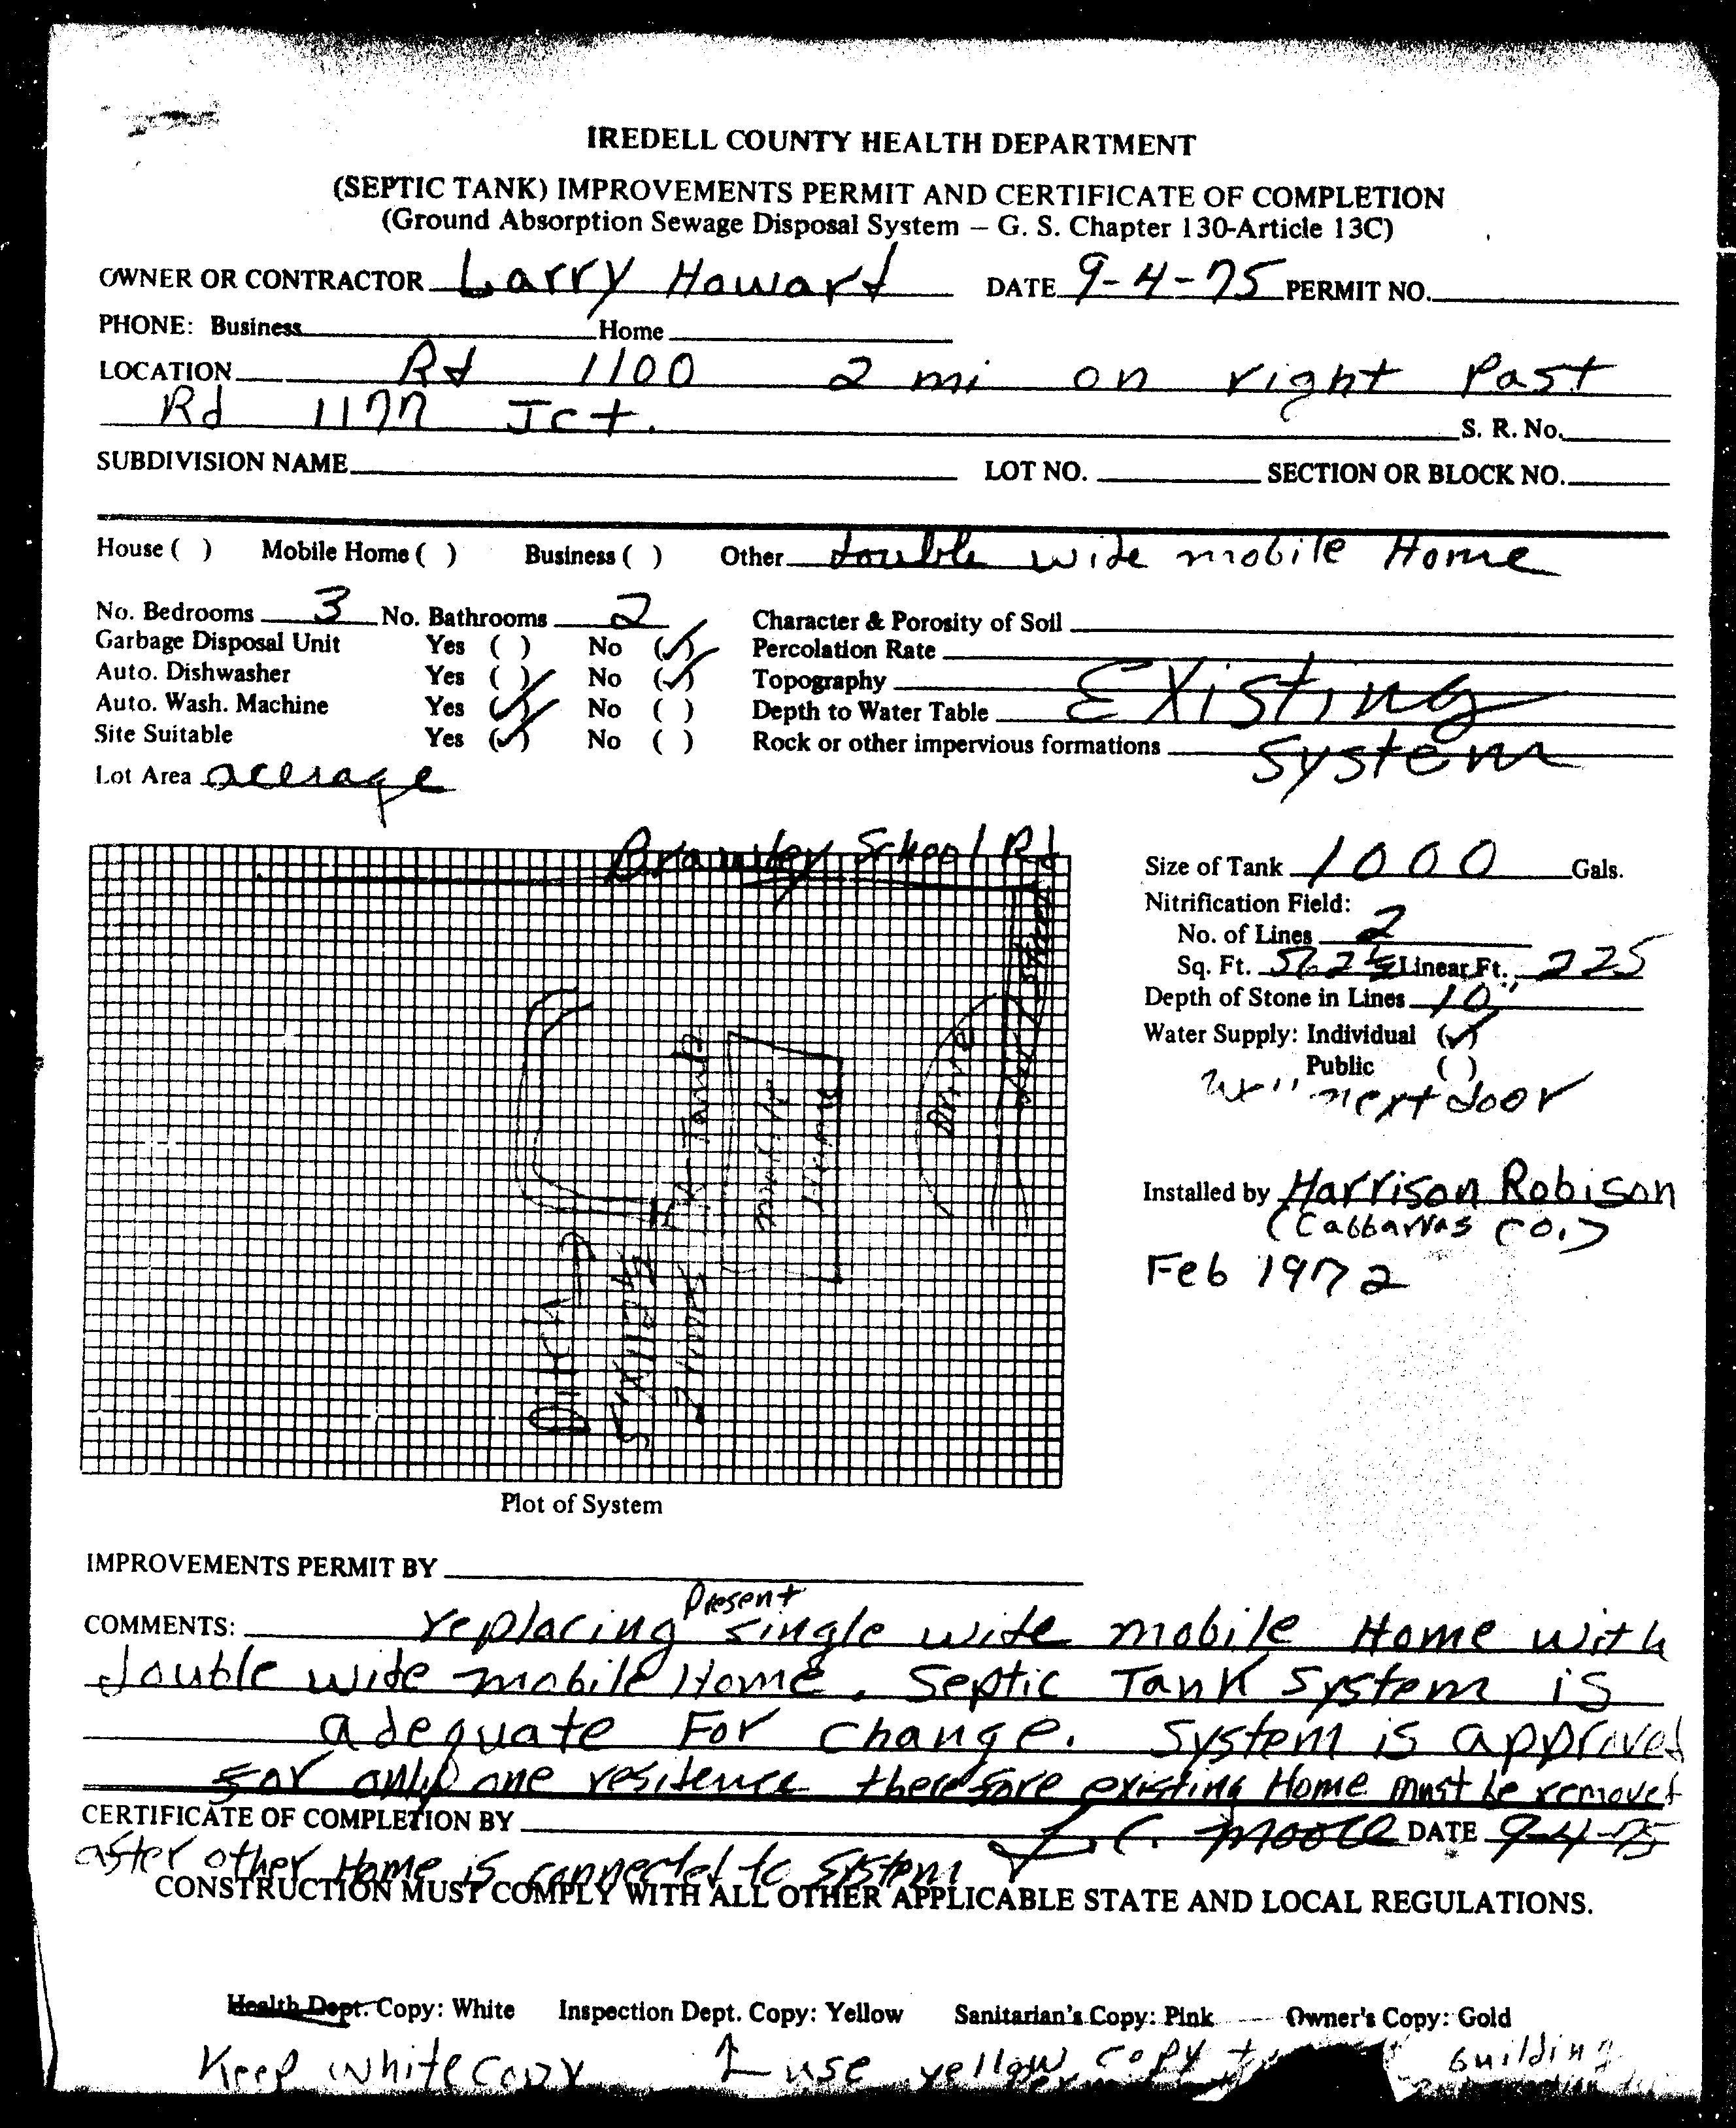 IREDELL COUNTY HEALTH DEPARTMENT
(SEPTIC TANK) IMPROVEMENTS PERMIT AND CERTIFICATE OF COMPLETION
(Ground Absorption Sewage Disposal System – G. S. Chapter 130-Article 13C)
OWNER OR CONTRACTOR Larry Howard DATE 9-4-75 PERMIT NO.
PHONE: Business Home
LOCATION Rd 1100 2 mi on right Past
Rd 1177 Jct. S. R. No.
SUBDIVISION NAME LOT NO. SECTION OR BLOCK NO.
House ( ) Mobile Home ( ) Business ( ) Other double wide mobile Home
No. Bedrooms 3 No. Bathrooms 2 Character & Porosity of Soil
Garbage Disposal Unit Yes ( ) No (✓) Percolation Rate
Auto. Dishwasher Yes ( ) No (✓) Topography Existing
Auto. Wash. Machine Yes (✓) No ( ) Depth to Water Table
Site Suitable Yes (✓) No ( ) Rock or other impervious formations System
Lot Area acerage
Brawley School Rd
Size of Tank 1000 Gals.
Nitrification Field:
No. of Lines 2
Sq. Ft. 562½ Linear Ft. 225
Depth of Stone in Lines 10"
Water Supply: Individual (✓)
Public ( )
Well next door
Drive
Tank
mobile
Home
Ditch
existing
Lines
Installed by Harrison Robison
(Cabbarras Co.)
Feb 1972
Plot of System
IMPROVEMENTS PERMIT BY
COMMENTS: replacing Present single wide mobile Home with
double wide mobile Home. Septic Tank System is
adequate For change. System is approved
for only one residence therefore existing Home must be removed
CERTIFICATE OF COMPLETION BY L.C. Moore DATE 9-4-75
after other Home is connected to System
CONSTRUCTION MUST COMPLY WITH ALL OTHER APPLICABLE STATE AND LOCAL REGULATIONS.
Health Dept. Copy: White Inspection Dept. Copy: Yellow Sanitarian's Copy: Pink Owner's Copy: Gold
Keep white copy ↑ use yellow copy building